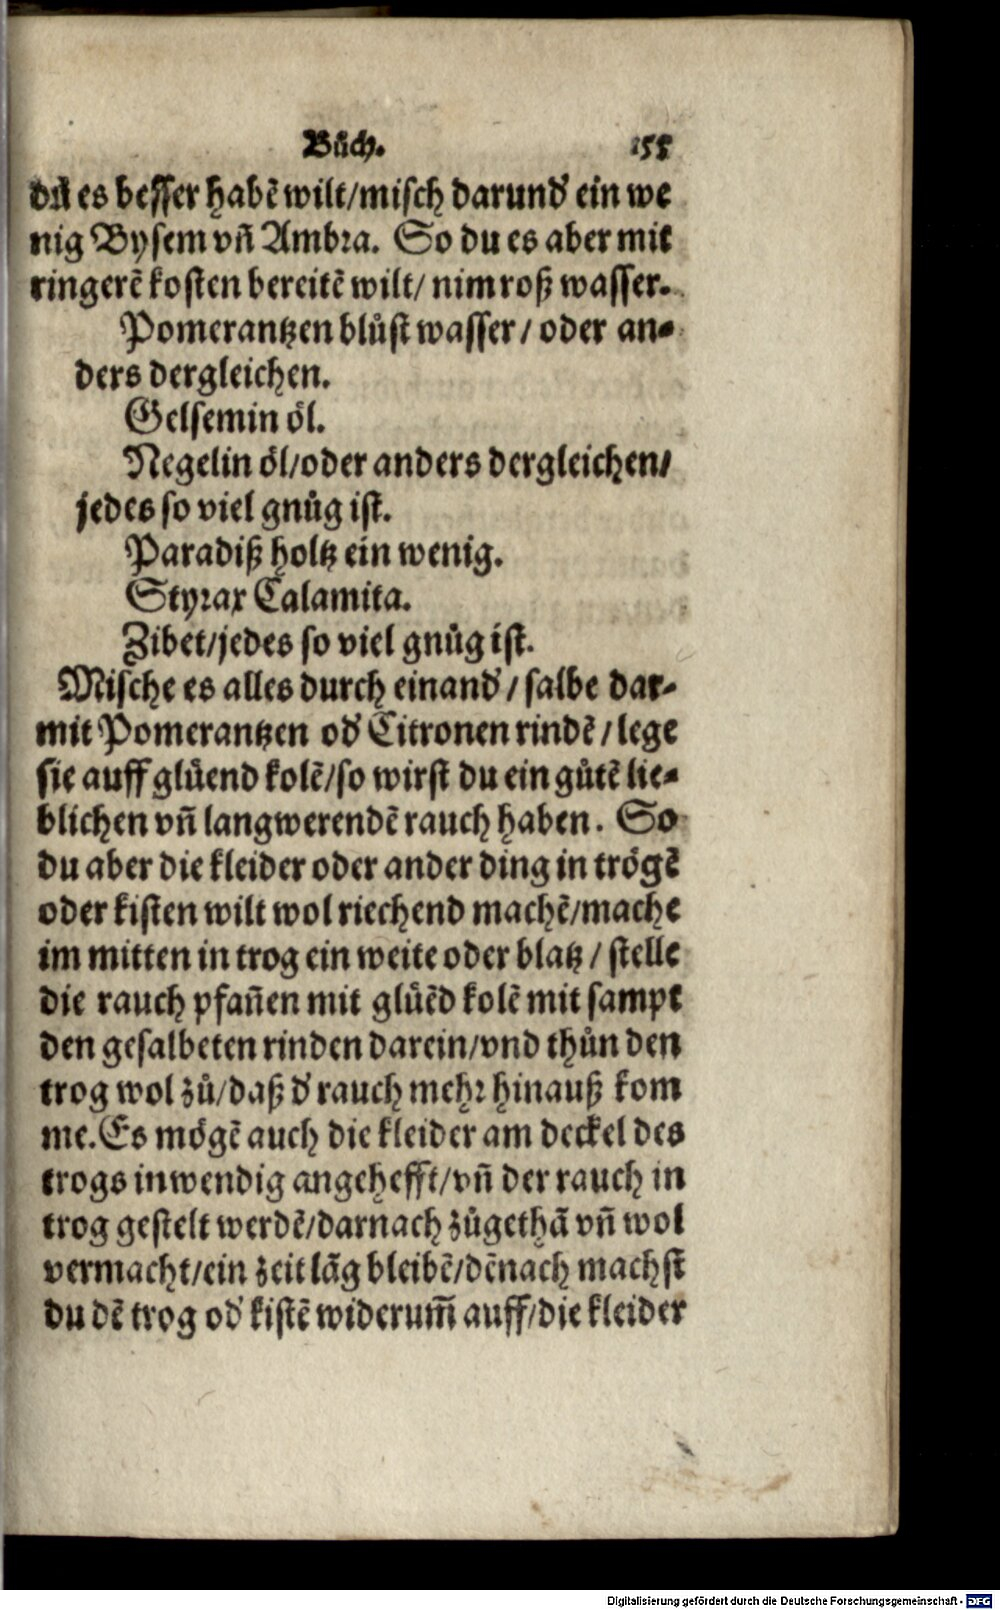 Bůch. 155
dů es besser habẽ wilt/misch darund' ein we
nig Bysem vñ Ambra. So du es aber mit
ringerẽ kosten bereitẽ wilt/ nim roß wasser.
Pomerantzen blůst wasser/ oder an-
ders dergleichen.
Gelsemin öl.
Negelin öl/oder anders dergleichen/
jedes so viel gnůg ist.
Paradiß holtz ein wenig.
Styrax Calamita.
Zibet/jedes so viel gnůg ist.
Mische es alles durch einand'/ salbe dar-
mit Pomerantzen od' Citronen rindẽ/ lege
sie auff glüend kolẽ/so wirst du ein gůtẽ lie-
blichen vñ langwerendẽ rauch haben. So
du aber die kleider oder ander ding in trögẽ
oder kisten wilt wol riechend machẽ/mache
im mitten in trog ein weite oder blatz/ stelle
die rauch pfañen mit glüẽd kolẽ mit sampt
den gesalbeten rinden darein/vnd thůn den
trog wol zů/daß d' rauch mehr hinauß kom
me. Es mögẽ auch die kleider am deckel des
trogs inwendig angehefft/vñ der rauch in
trog gestelt werdẽ/darnach zůgethã vñ wol
vermacht/ein zeit lãg bleibẽ/dẽnach machst
du dẽ trog od' kistẽ widerum̃ auff/die kleider
Digitalisierung gefördert durch die Deutsche Forschungsgemeinschaft - DFG